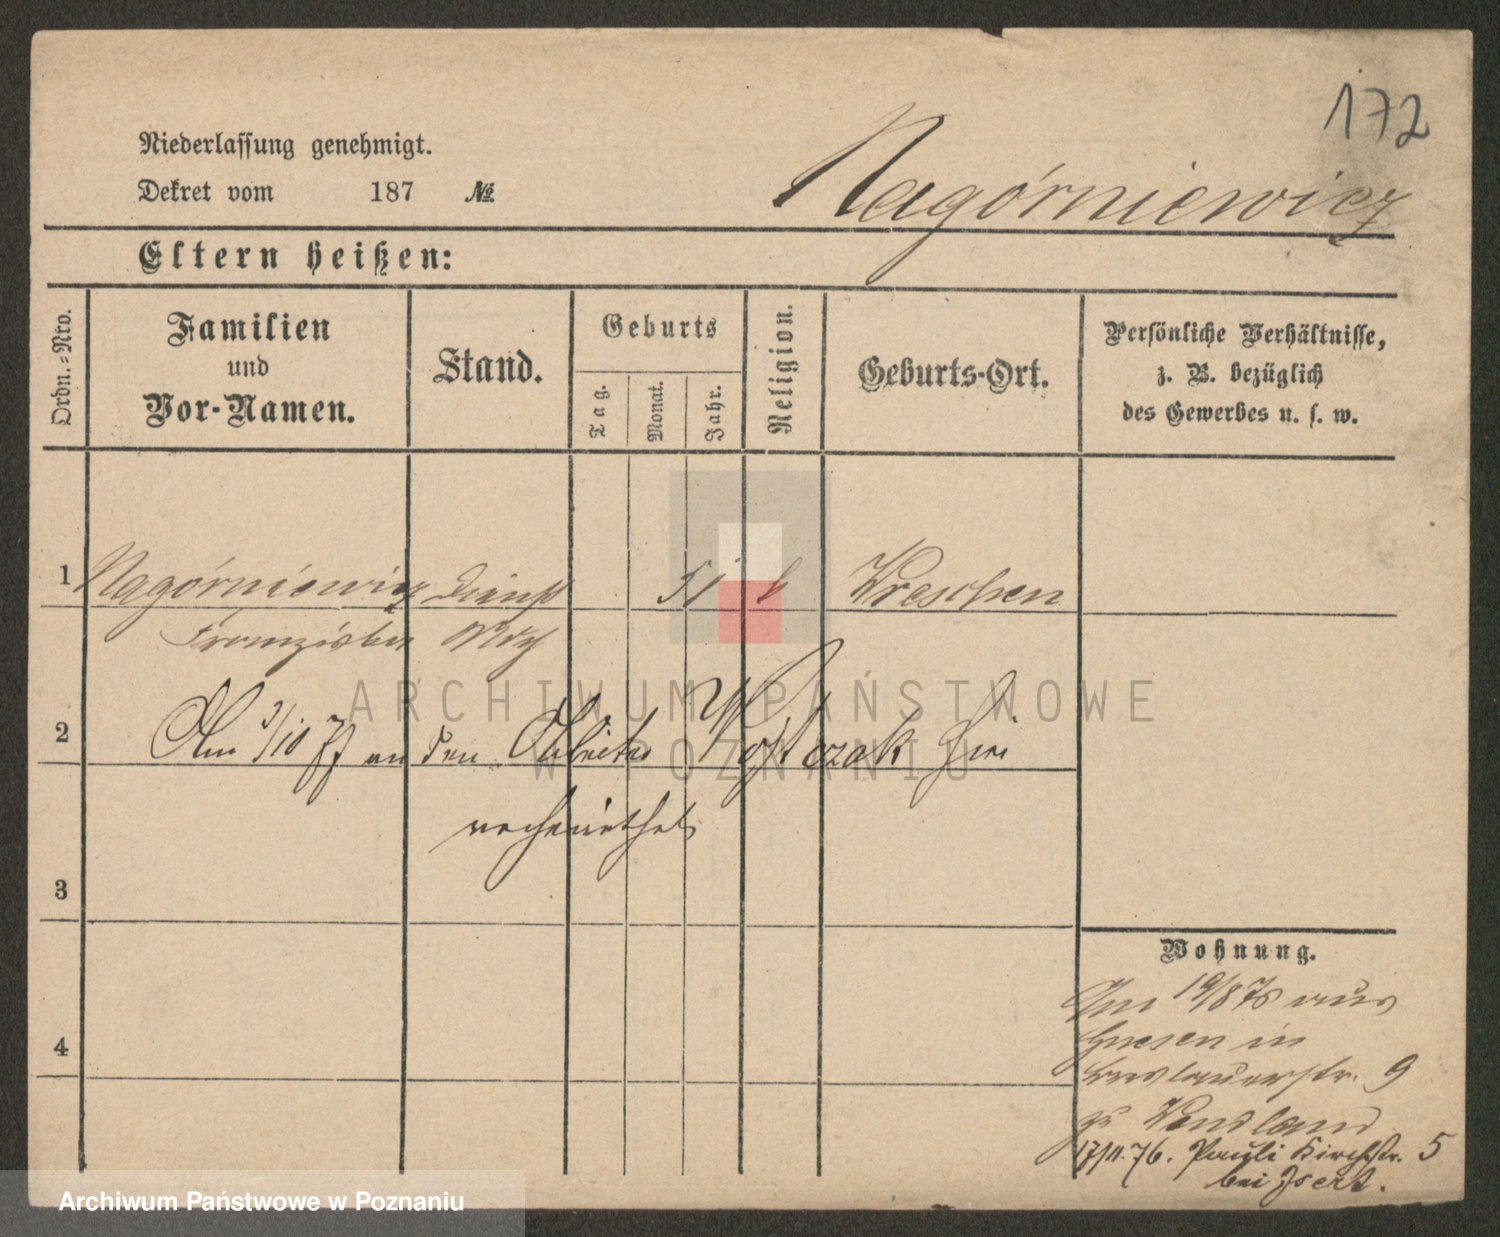 172
Niederlassung genehmigt.
Dekret vom 187 №
Nagórniewicz
Eltern heißen:
Ordn.=Nro.
Familien
und
Vor-Namen.
Stand.
Geburts
Tag.
Monat.
Jahr.
Religion.
Geburts-Ort.
Persönliche Verhältnisse,
z. B. bezüglich
des Gewerbes u. s. w.
1 Nagórniewicz Dienst 51 k Wreschen
Franziska
2 Am 3/10 77 an den Arbeiter hier
verheirathet
3
4
Wohnung.
Am 19/8 76 aus
Gnesen in
Breslauerstr. 9
zu Wendland
17/11.76. Pauli Kirchstr. 5
bei Isert.
ARCHIWUM PAŃSTWOWE
W POZNANIU
Archiwum Państwowe w Poznaniu